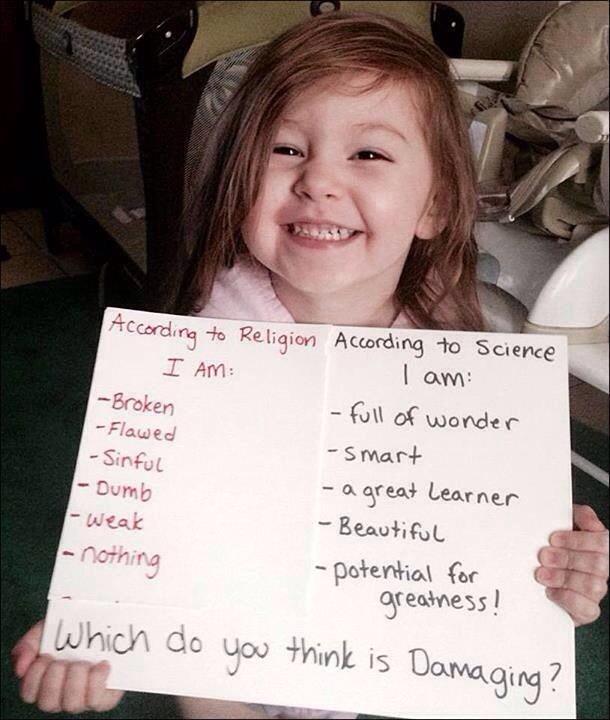 According to Religion
I AM:
-Broken
-Flawed
-Sinful
- Dumb
- Weak
- nothing
-
According to Science
I am:
- full of wonder
- smart
- a great Learner
- Beautiful
- potential for
greatness!
Which do you think is Damaging?